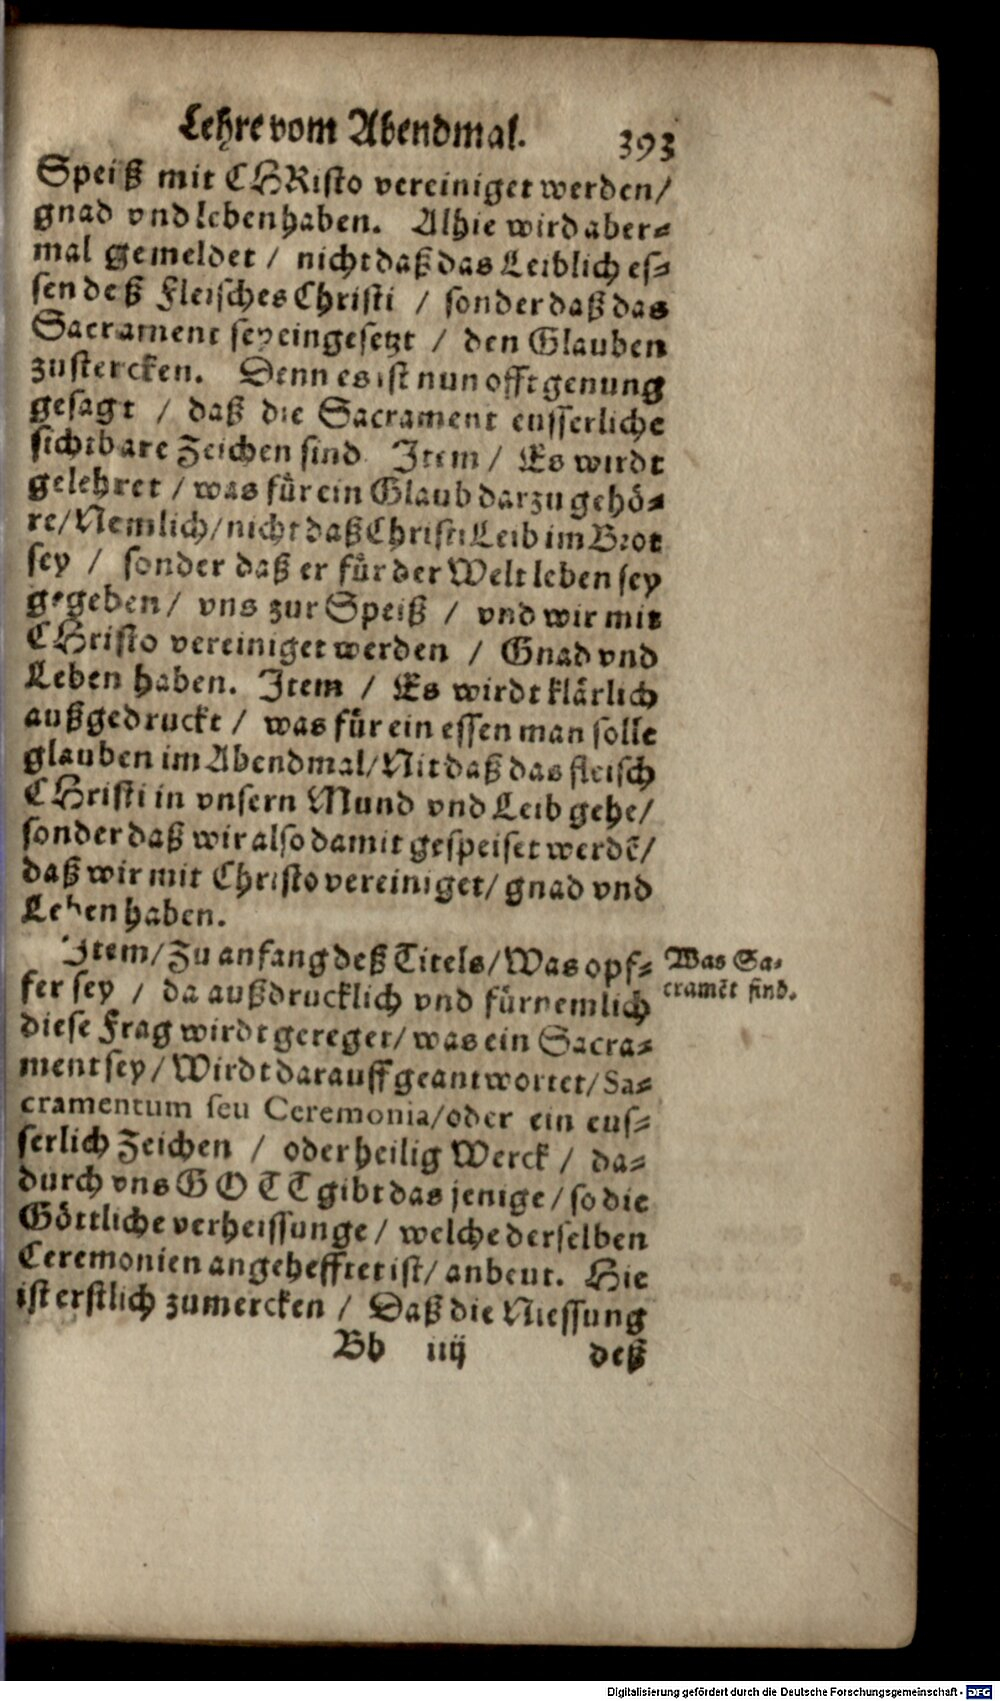 Lehre vom Abendmal. 393
Speiß mit CHRisto vereiniget werden/
gnad vnd leben haben. Alhie wird aber⸗
mal gemeldet / nicht daß das Leiblich es⸗
sen deß Fleisches Christi / sonder daß das
Sacrament sey eingesetzt / den Glauben
zustercken. Denn es ist nun offt genung
gesagt / daß die Sacrament eusserliche
sichtbare Zeichen sind. Item / Es wirdt
gelehret / was für ein Glaub darzu gehö⸗
re/ Nemlich/ nicht daß Christi Leib im Brot
sey / sonder daß er für der Welt leben sey
gegeben / vns zur Speiß / vnd wir mit
CHristo vereiniget werden / Gnad vnd
Leben haben. Item / Es wirdt klärlich
außgedruckt / was für ein essen man solle
glauben im Abendmal/ Nit daß das fleisch
CHristi in vnsern Mund vnd Leib gehe/
sonder daß wir also damit gespeiset werdẽ/
daß wir mit Christo vereiniget/ gnad vnd
Leben haben.
Item/ Zu anfang deß Titels/ Was opf⸗
fer sey / da außdrucklich vnd fürnemlich
Was Sa⸗
cramẽt sind.
diese Frag wirdt gereget/ was ein Sacra⸗
ment sey/ Wirdt darauff geantwortet/ Sa⸗
cramentum seu Ceremonia/ oder ein eus⸗
serlich Zeichen / oder heilig Werck / da⸗
durch vns GOTT gibt das jenige/ so die
Göttliche verheissunge/ welche derselben
Ceremonien angehefftet ist/ anbeut. Hie
ist erstlich zumercken / Daß die Niessung
Bb iiij deß
Digitalisierung gefördert durch die Deutsche Forschungsgemeinschaft - DFG